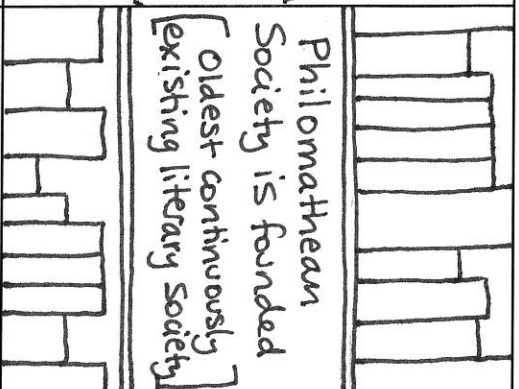 Philomathean
Society is founded
[Oldest continuously
existing literary society]